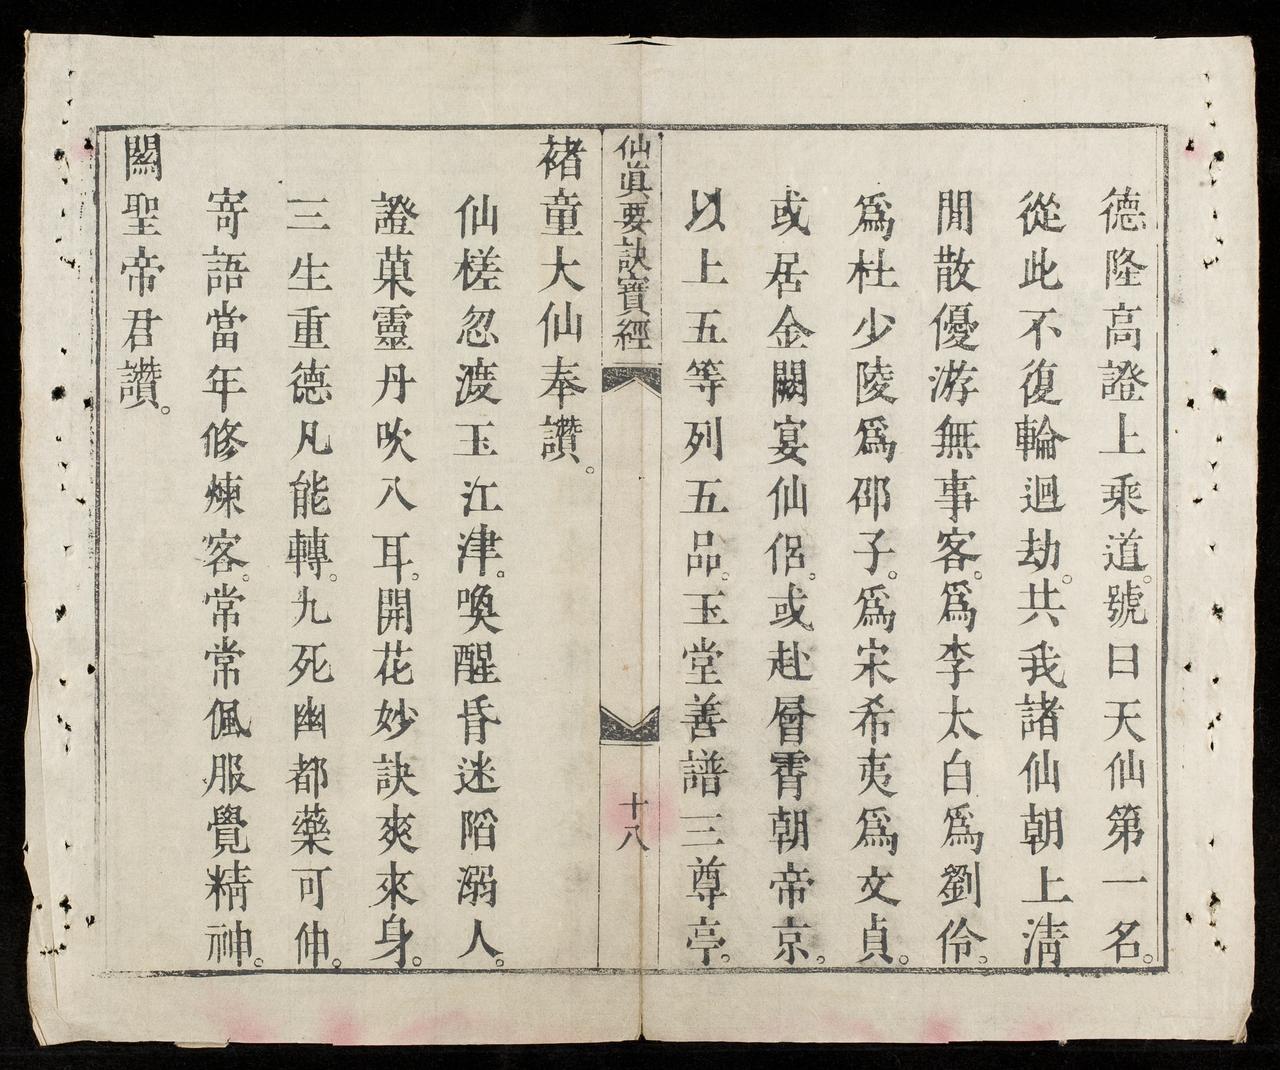 德隆高證上乘道。號曰天仙第一名。
從此不復輪迴劫。共我諸仙朝上淸
閒散優游無事客。爲李太白爲劉伶。
爲杜少陵爲邵子。爲宋希夷爲文貞。
或居金闕宴仙侶。或赴層霄朝帝京。
以上五等列五品。玉堂善譜三尊亭。
仙眞要訣寶經
十八
褚童大仙奉讚。
仙槎忽渡玉江津。喚醒昏迷陷溺人。
證菓靈丹吹八耳。開花妙訣爽來身。
三生重德凡能轉。九死幽都藥可伸。
寄語當年修煉客。常常佩服覺精神。
關聖帝君讚。